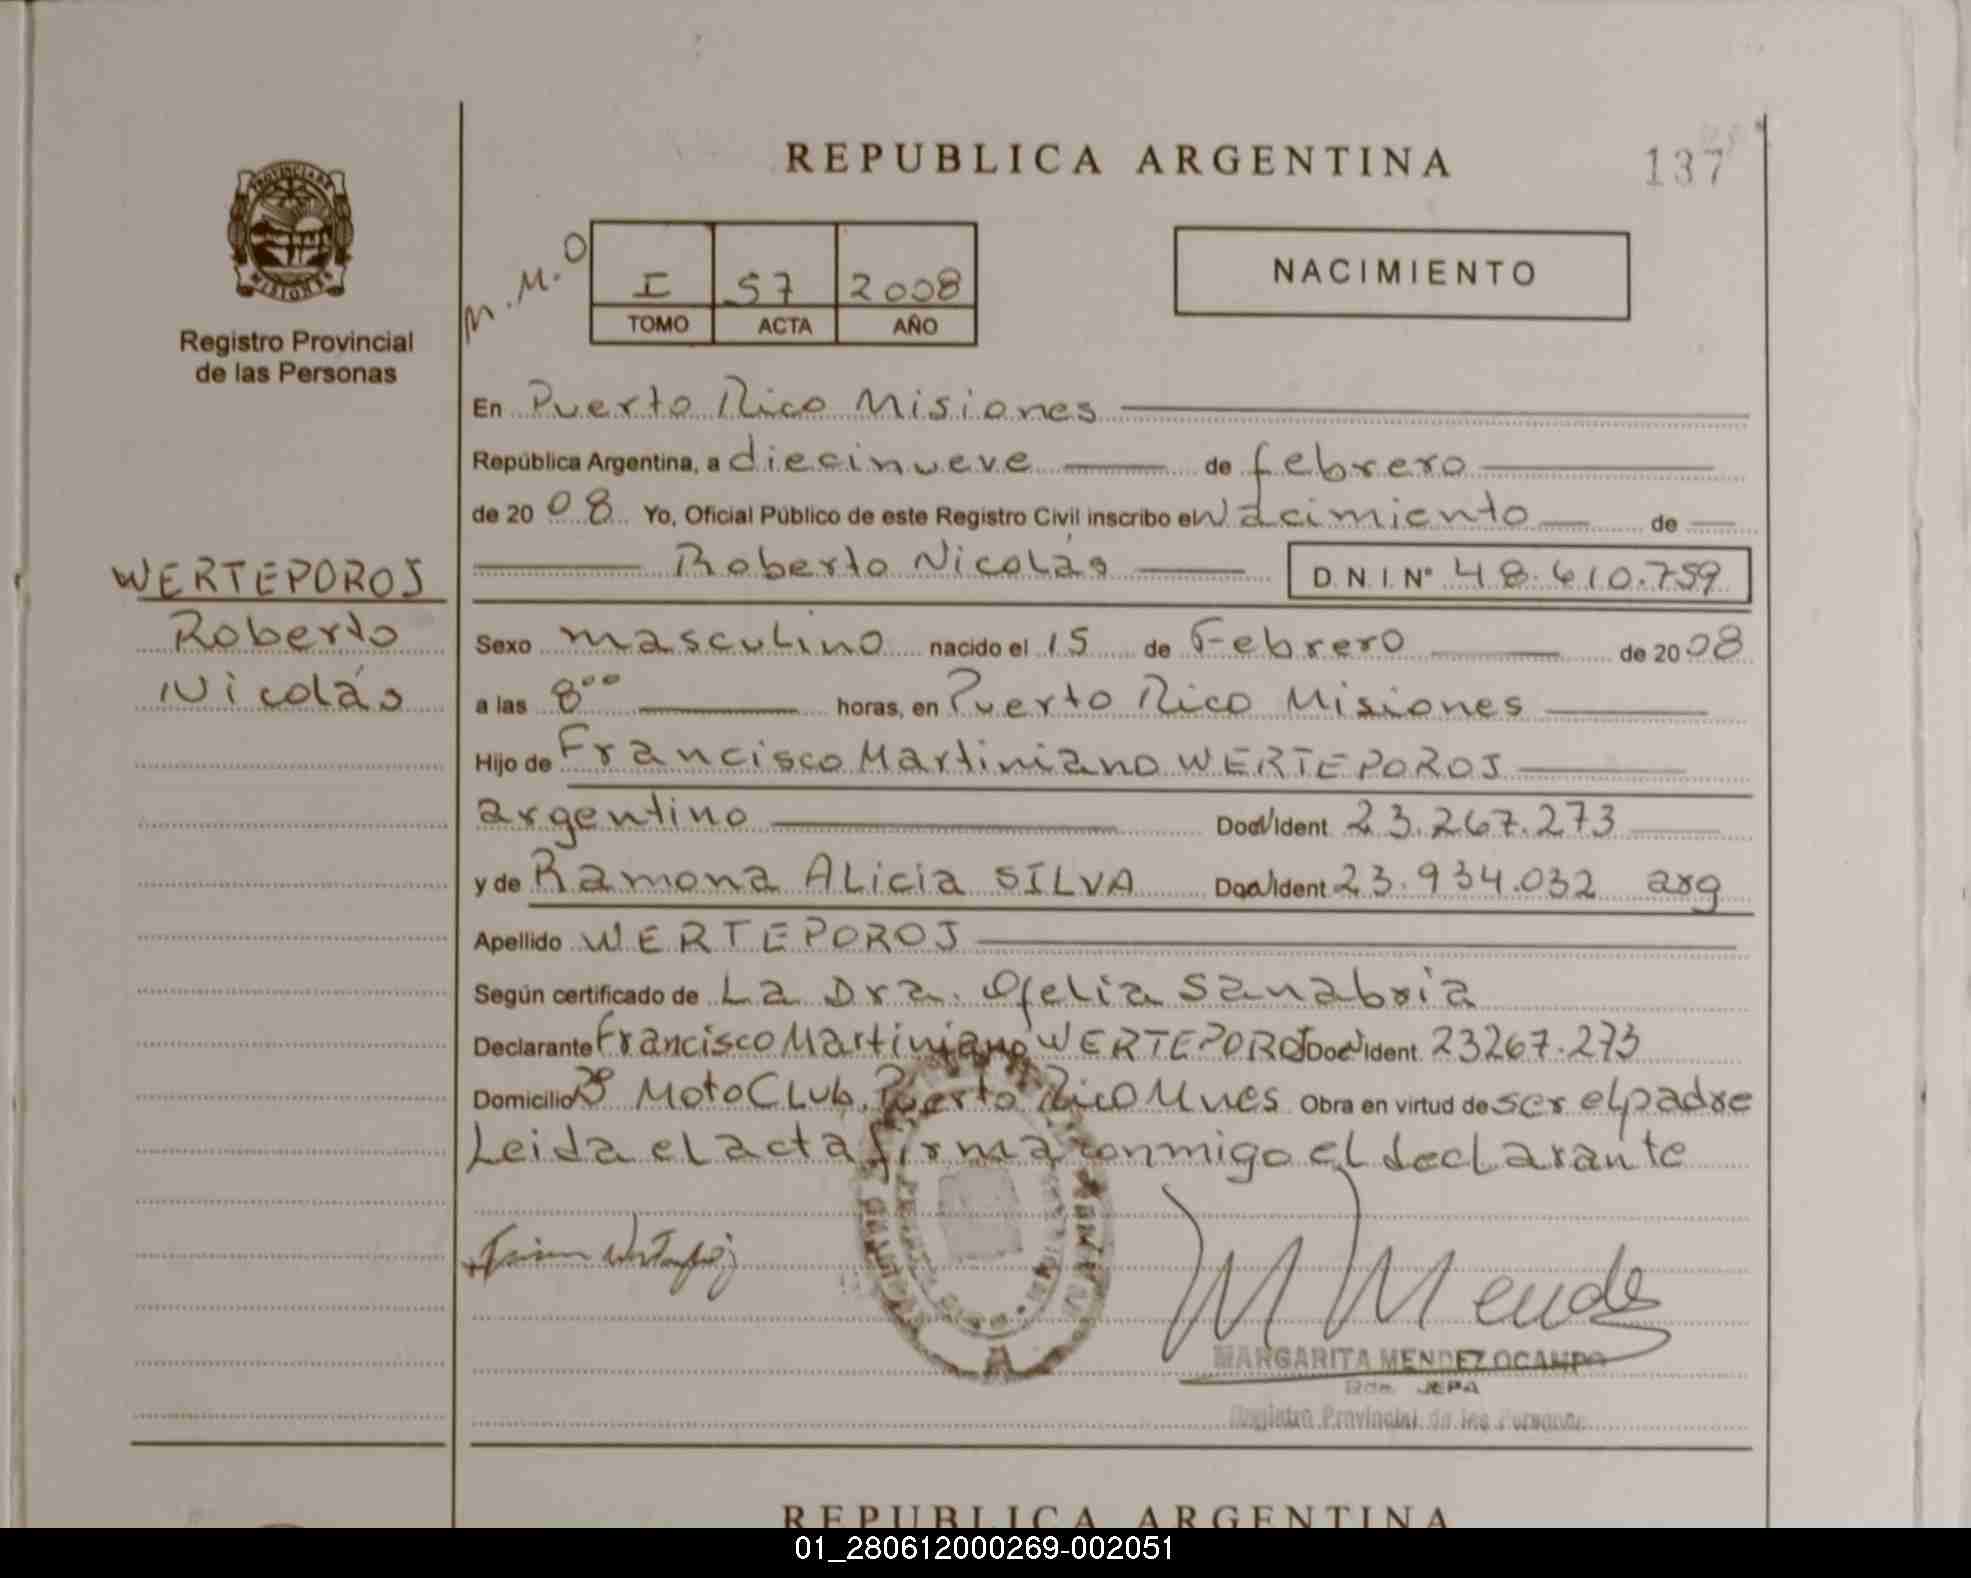 REPUBLICA ARGENTINA
137
PROVINCIA DE
MISIONES
Registro Provincial
de las Personas
M.M.O
I 57 2008
TOMO ACTA AÑO
NACIMIENTO
En Puerto Rico Misiones
República Argentina, a diecinueve de febrero
de 2008 Yo, Oficial Público de este Registro Civil inscribo el Nacimiento de
Roberto Nicolás D.N.I. Nº 48.610.759
WERTEPOROJ
Roberto
Nicolás
Sexo masculino nacido el 15 de Febrero de 2008
a las 8⁰⁰ horas, en Puerto Rico Misiones
Hijo de Francisco Martiniano WERTEPOROJ
argentino Doc/Ident 23.267.273
y de Ramona ALicia SILVA Doc/Ident 23.934.032 arg
Apellido WERTEPOROJ
Según certificado de La Dra. Ofelia Sanabria
Declarante Francisco Martiniano WERTEPOROJ Doc/Ident 23267.273
Domicilio Bº MotoCLub. Puerto Rico Mnes Obra en virtud de ser el padre
Leida el acta firma conmigo el declarante
M Mendez
MARGARITA MENDEZ OCAMPO
JEFA
Registro Provincial de las Personas
REPUBLICA ARGENTINA
01_280612000269-002051